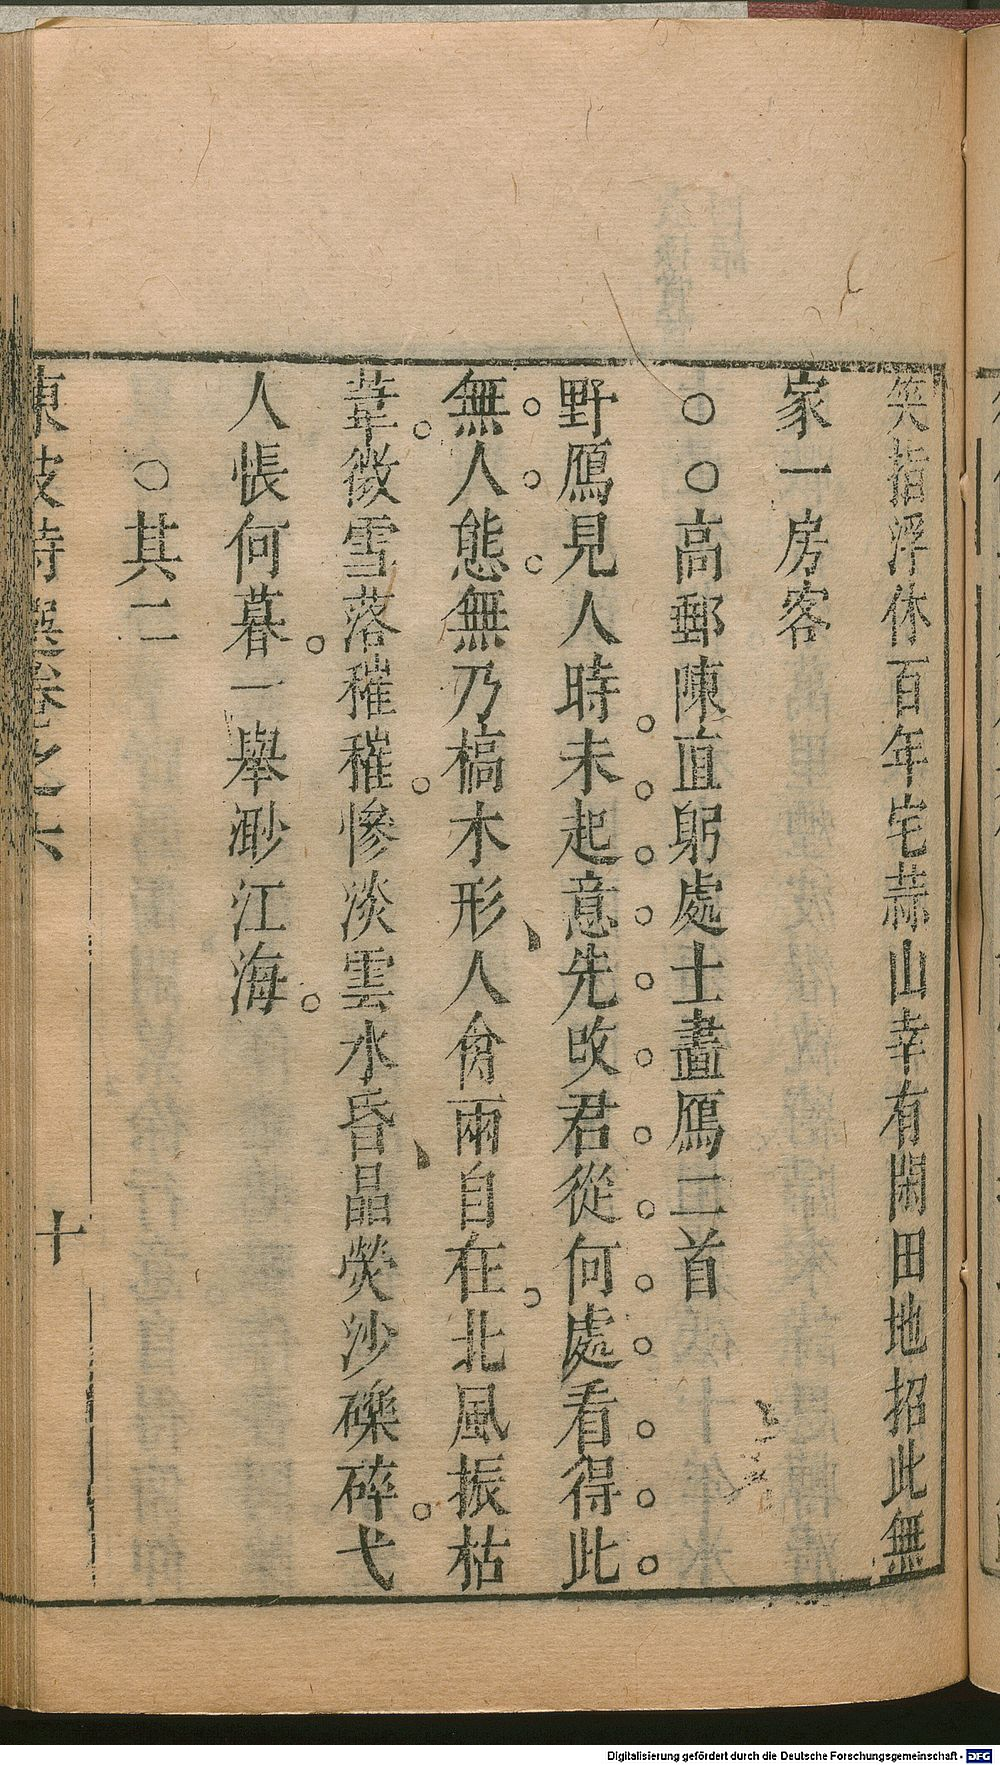 笑指浮休百年宅蒜山幸有閑田地招此無
家一房客
○○高郵陳直躬處士畫鴈二首
野鴈見人時未起意先改君從何處看得此
無人態無乃槁木形人禽兩自在北風振枯
葦微雪落璀璀慘淡雲水昏晶熒沙礫碎弋
人悵何暮一舉渺江海
○其二
東坡詩選卷之六
十
Digitalisierung gefördert durch die Deutsche Forschungsgemeinschaft - DFG